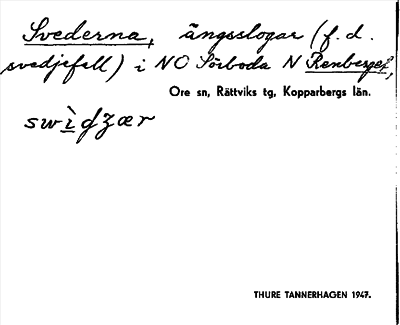 Svederna, ängsslogar (f. d.
svedjefall) i NO Sörboda N Renberget,
Ore sn, Rättviks tg, Kopparbergs län.
THURE TANNERHAGEN 1947.